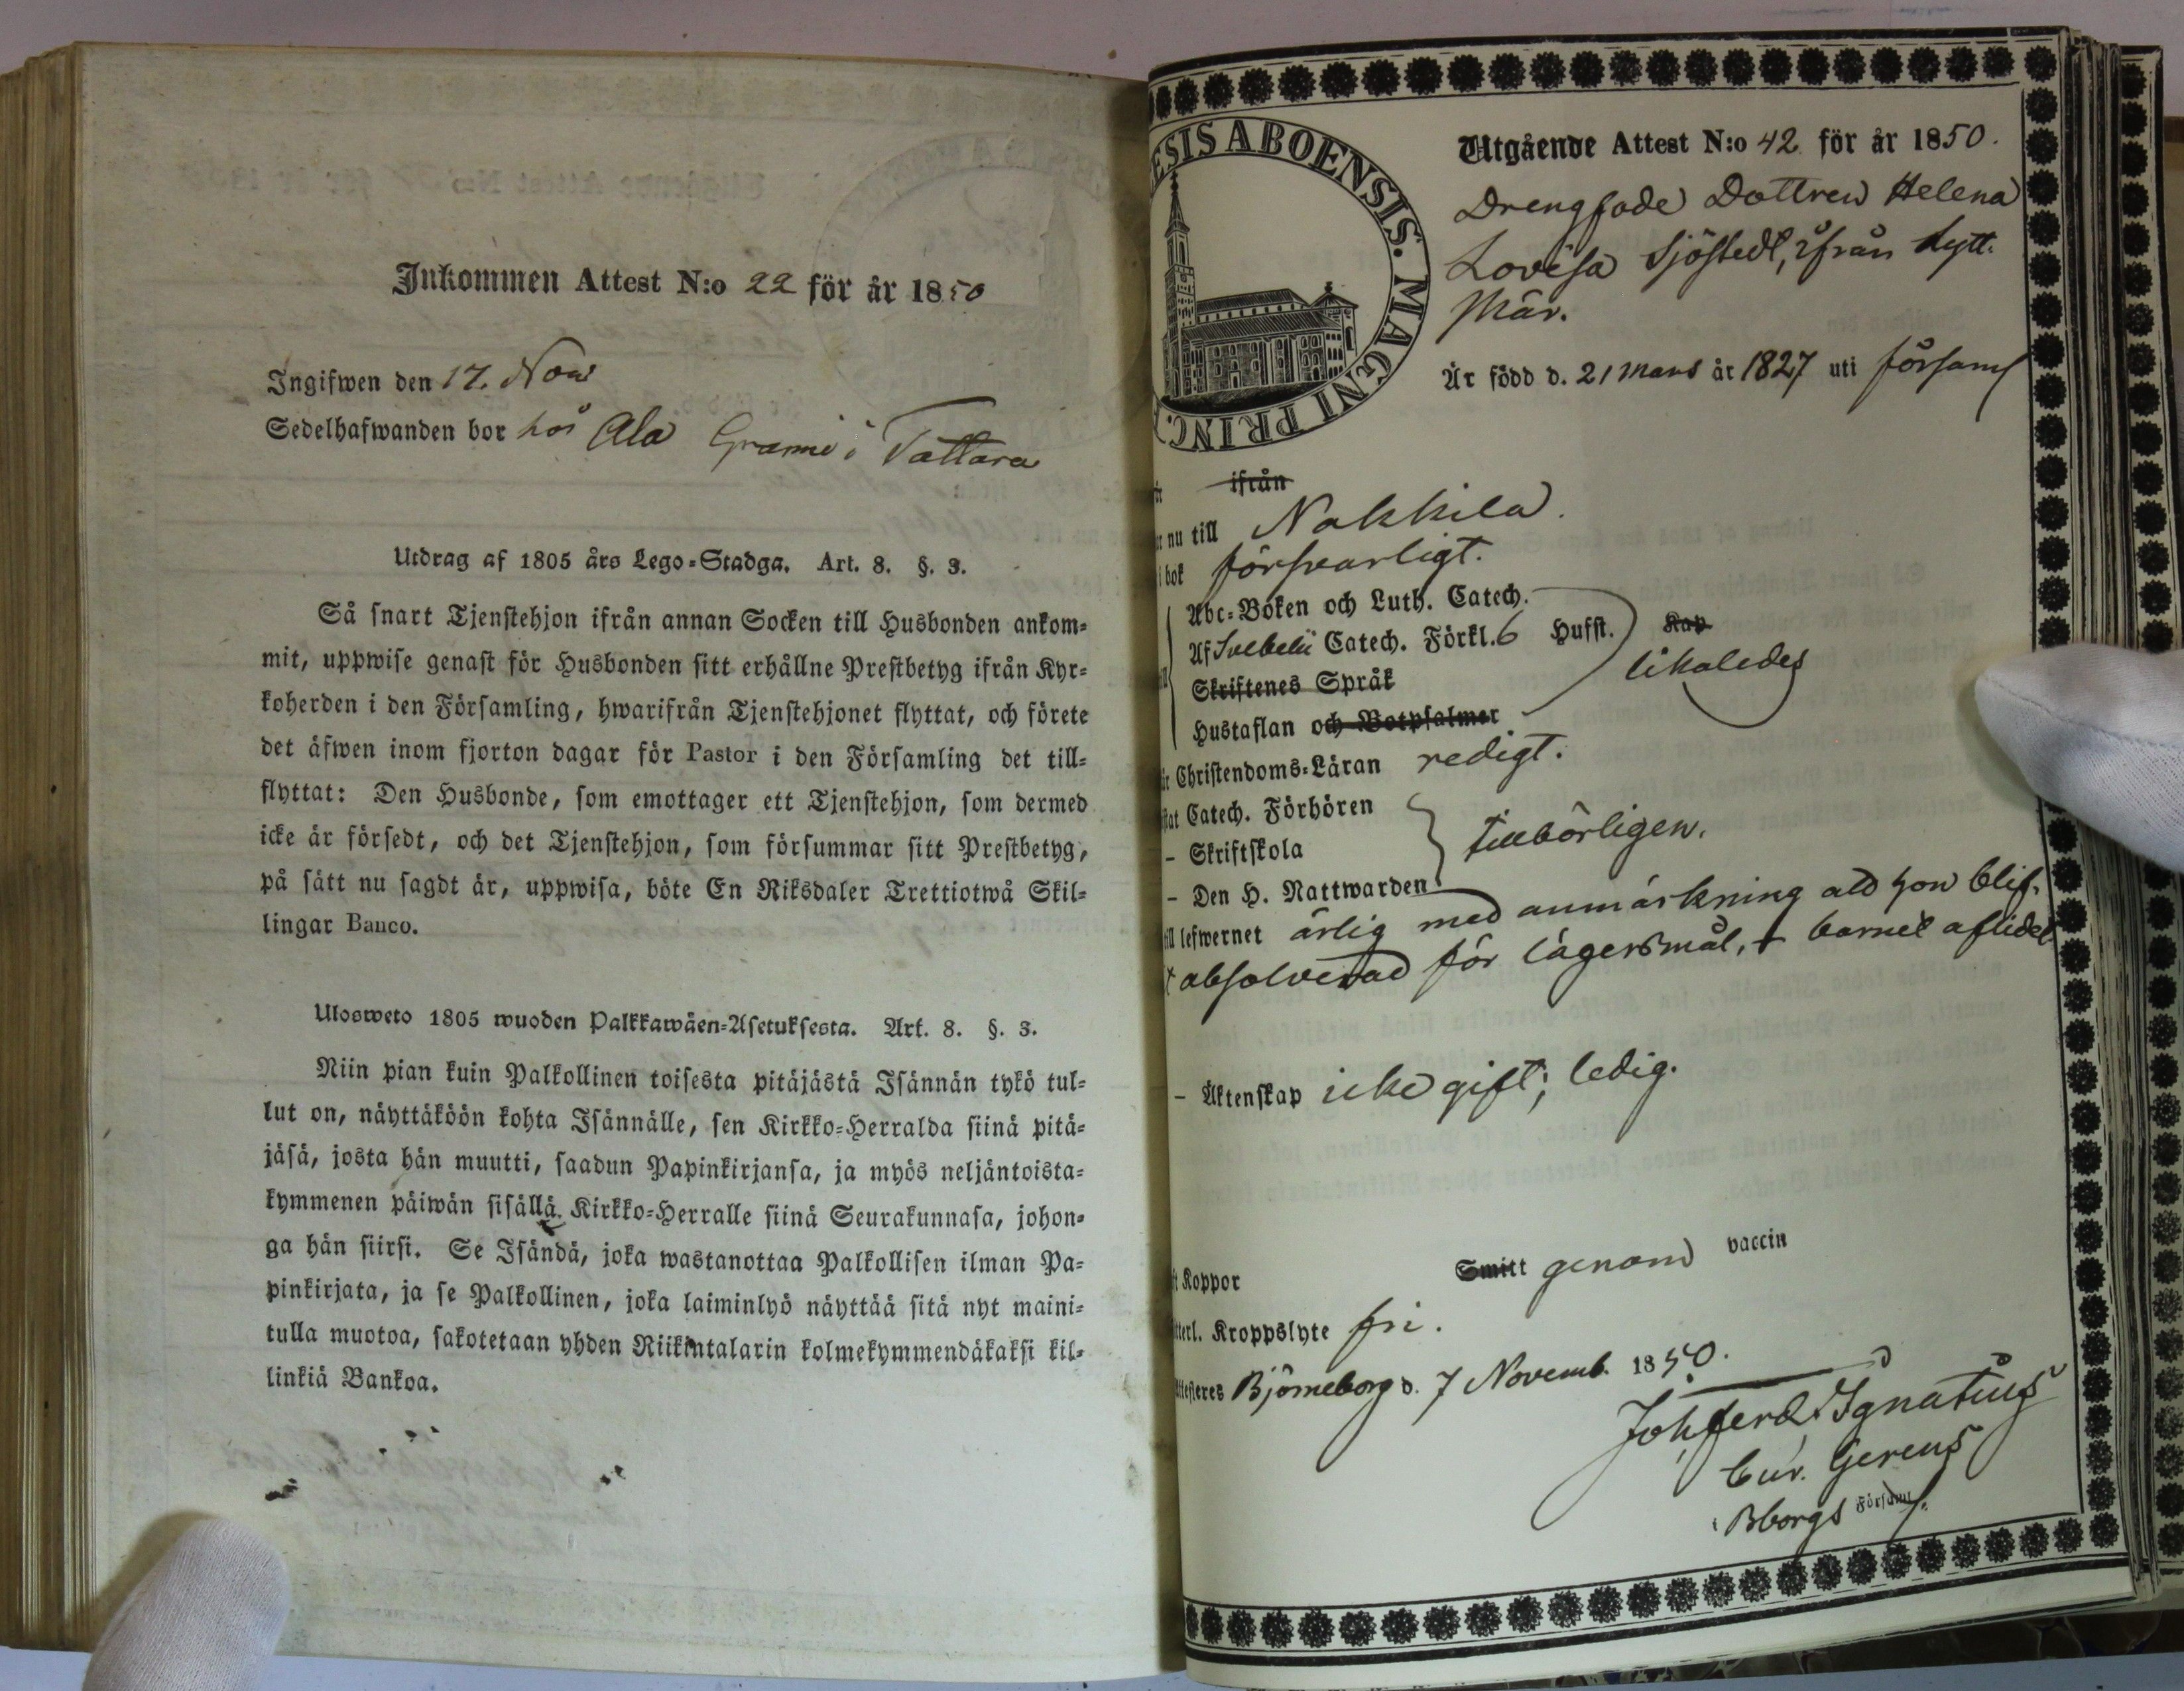 Inkommen Attest N:o 22 för år 1850
Ingifwen den 17. Nov
Sedelhafwanden bor hos Ala Granni i Tattara
Utdrag af 1805 års Lego-Stadga. Art. 8. §. 3.
Så snart Tjenstehjon ifrån annan Socken till Husbonden ankom-
mit, uppwise genast för Husbonden sitt erhållne Prestbetyg ifrån Kyr-
koherden i den Församling, hwarifrån Tjenstehjonet flyttat, och förete
det äfwen inom fjorton dagar för Pastor i den Församling det till-
flyttat: Den Husbonde, som emottager ett Tjenstehjon, som dermed
icke är försedt, och det Tjenstehjon, som försummar sitt Prestbetyg,
på sätt nu sagdt är, uppwisa, böte En Riksdaler Trettiotwå Skil-
lingar Banco.
Ulosweto 1805 wuoden Palkkawäen-Asetuksesta. Art. 8. §. 3.
Niin pian kuin Palkollinen toisesta pitäjästä Isännän tykö tul-
lut on, näyttäköön kohta Isännälle, sen Kirkko-Herralda siinä pitä-
jäsä, josta hän muutti, saadun Papinkirjansa, ja myös neljäntoista-
kymmenen päiwän sisällä Kirkko-Herralle siinä Seurakunnasa, johon-
ga hän siirsi. Se Isändä, joka wastanottaa Palkollisen ilman Pa-
pinkirjata, ja se Palkollinen, joka laiminlyö näyttää sitä nyt maini-
tulla muotoa, sakotetaan yhden Riikintalarin kolmekymmendäkaksi kil-
linkiä Bankoa.
ESIS ABOENSIS. MAGNI PRINC.
Utgående Attest N:o 42 för år 1850.
Drengfade Dottren Helena
Lovisa Sjöstedt, ifrån Kytt.
Mär.
Är född d. 21 Mars år 1827 uti församl
ifrån
nu till Nakkila.
i bok försvarligt.
Abc-Boken och Luth. Catech.
Af Svebelii Catech. Förkl. 6 Hufst. Kap
likaledes
Skriftenes Språk
Hustaflan och Botpsalmer
Christendoms-Läran redigt.
Catech. Förhören
- Skriftskola tillbörligen.
- Den H. Nattwarden
lefwernet ärlig med anmärkning att hon blif-
absolverad för lägersmål, + barnet aflidet
- Äktenskap icke gift; ledig.
Koppor Smitt genom vaccin
Kroppslyte fri.
Björneborg d. 7 Novemb. 1850.
Joh. Ferd. Ignatius
Cur. Gerens
i Bborgs Församl.